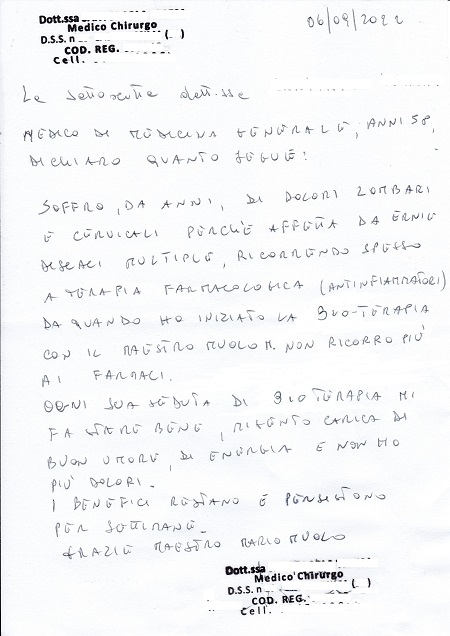 Dott.ssa
Medico Chirurgo
D.S.S. n ( )
COD. REG.
Cell.
06/09/2022
La sottoscritta dott.ssa
MEDICO DI MEDICINA GENERALE, ANNI 58,
DICHIARO QUANTO SEGUE:
SOFFRO, DA ANNI, DI DOLORI LOMBARI
E CERVICALI PERCHÈ AFFETTA DA ERNIE
DISCALI MULTIPLE, RICORRENDO SPESSO
A TERAPIA FARMACOLOGICA (ANTINFIAMMATORI)
DA QUANDO HO INIZIATO LA BIO-TERAPIA
CON IL MAESTRO MUOLO M. NON RICORRO PIÙ
AI FARMACI.
OGNI SUA SEDUTA DI BIOTERAPIA MI
FA STARE BENE, RISENTO CARICA DI
BUON UMORE, DI ENERGIA E NON HO
PIÙ DOLORI.
I BENEFICI RESTANO E PERSISTONO
PER SETTIMANE.
GRAZIE MAESTRO MARIO MUOLO
Dott.ssa
Medico Chirurgo
D.S.S. n ( )
COD. REG.
Cell.